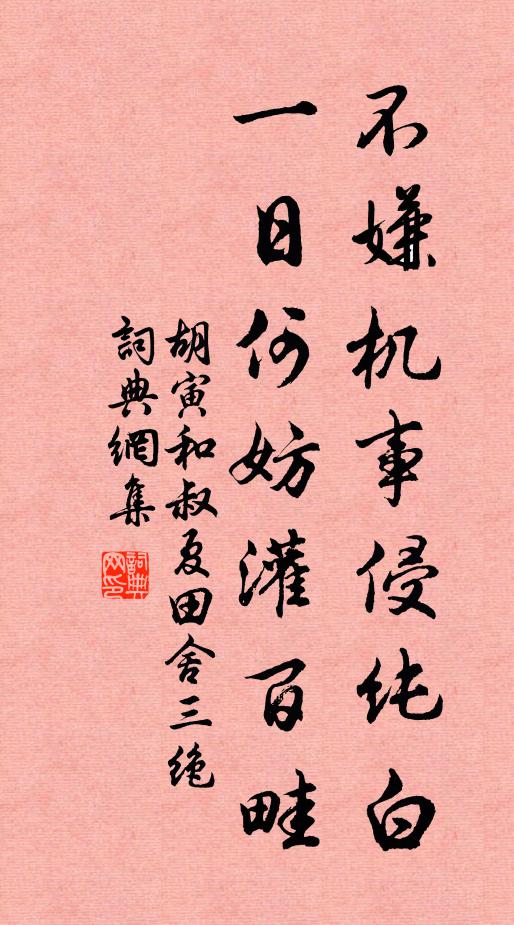 不嫌机事侵纯白
一日何妨灌百畦
胡寅和叔夏田舍三绝
詞典網集
詞典网印